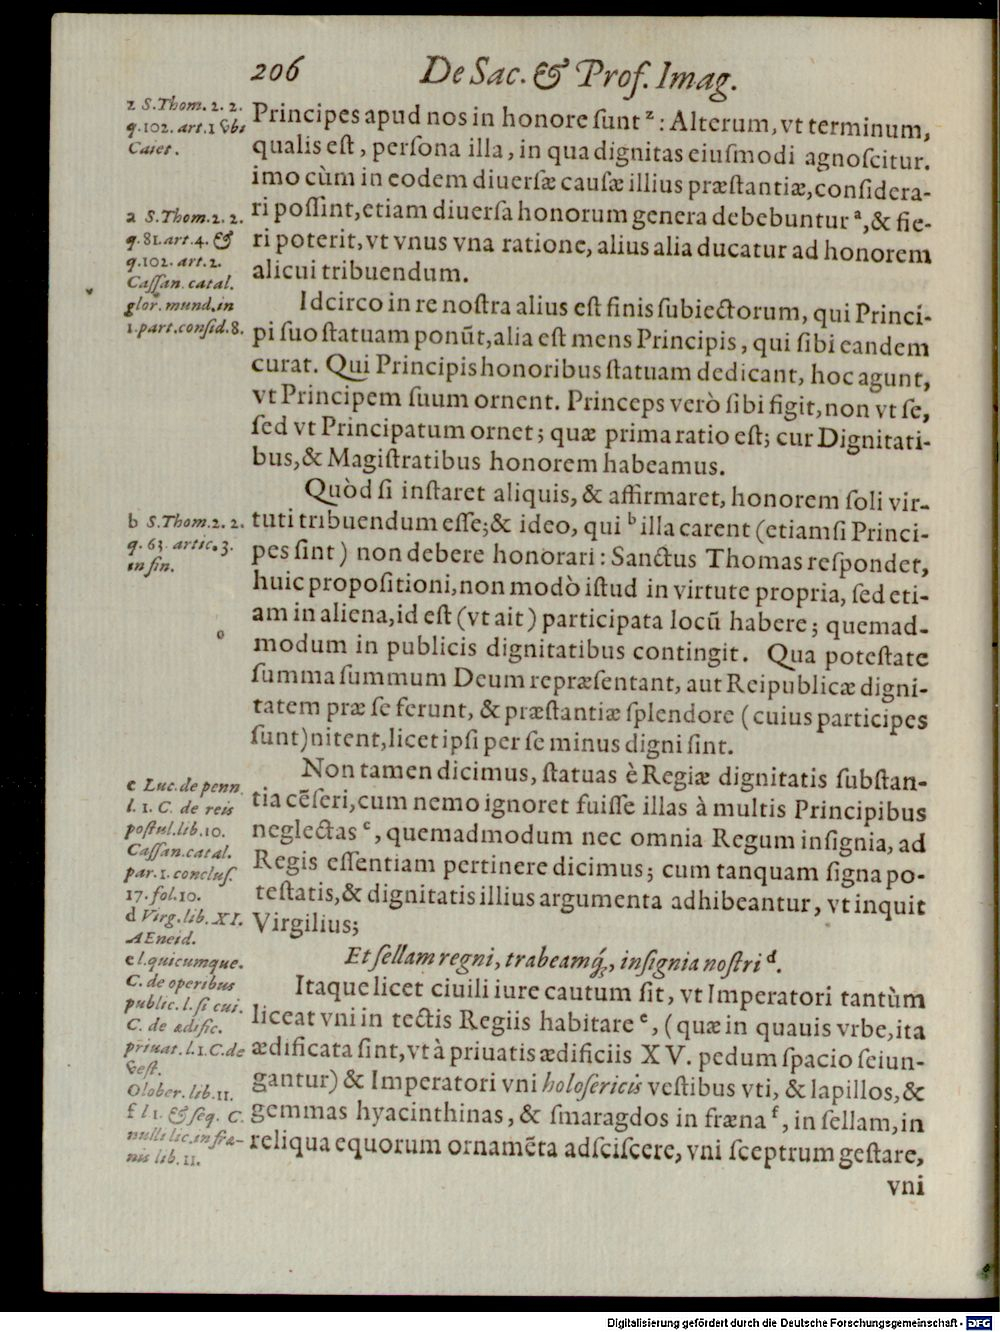 206 De Sac. & Prof. Imag.
z S.Thom. 2. 2.
q.102. art.1 vbi
Caiet.
a S.Thom.2. 2.
q. 81.art.4. &
q.102. art.2.
Cassan.catal.
glor.mund.in
1.part.consid.8.
b S.Thom.2. 2.
q. 63. artic. 3.
in fin.
c Luc. de penn
l. 1. C. de reis
postul.lib.10.
Cassan.catal.
par.1.conclus.
17. fol.10.
d Virg.lib. XI.
AEneid.
e l.quicumque.
C. de operibus
public. l. si cui.
C. de ædific.
priuat. l.1.C.de
vest.
Olober. lib.11.
f l 1. & seq. C.
nulli lic.in fræ-
nis lib. 11.
Principes apud nos in honore ſunt z : Alterum, vt terminum,
qualis eſt, perſona illa, in qua dignitas eiuſmodi agnoſcitur.
imo cùm in eodem diuerſæ cauſæ illius præſtantiæ, conſidera-
ri poſſint, etiam diuerſa honorum genera debebuntur a, & fie-
ri poterit, vt vnus vna ratione, alius alia ducatur ad honorem
alicui tribuendum.
Idcirco in re noſtra alius eſt finis ſubiectorum, qui Princi-
pi ſuo ſtatuam ponũt, alia eſt mens Principis, qui ſibi eandem
curat. Qui Principis honoribus ſtatuam dedicant, hoc agunt,
vt Principem ſuum ornent. Princeps verò ſibi figit, non vt ſe,
ſed vt Principatum ornet; quæ prima ratio eſt; cur Dignitati-
bus, & Magiſtratibus honorem habeamus.
Quòd ſi inſtaret aliquis, & affirmaret, honorem ſoli vir-
tuti tribuendum eſſe; & ideo, qui b illa carent (etiamſi Princi-
pes ſint) non debere honorari: Sanctus Thomas reſpondet,
huic propoſitioni, non modò iſtud in virtute propria, ſed eti-
am in aliena, id eſt (vt ait) participata locũ habere; quemad-
modum in publicis dignitatibus contingit. Qua poteſtate
ſumma ſummum Deum repræſentant, aut Reipublicæ digni-
tatem præ ſe ferunt, & præſtantiæ ſplendore (cuius participes
ſunt) nitent, licet ipſi per ſe minus digni ſint.
Non tamen dicimus, ſtatuas è Regiæ dignitatis ſubſtan-
tia cẽſeri, cum nemo ignoret fuiſſe illas à multis Principibus
neglectas c, quemadmodum nec omnia Regum inſignia, ad
Regis eſſentiam pertinere dicimus; cum tanquam ſigna po-
teſtatis, & dignitatis illius argumenta adhibeantur, vt inquit
Virgilius;
Et ſellam regni, trabeamq́;, inſignia noſtri d.
Itaque licet ciuili iure cautum ſit, vt Imperatori tantùm
liceat vni in tectis Regiis habitare e, (quæ in quauis vrbe, ita
ædificata ſint, vt à priuatis ædificiis XV. pedum ſpacio ſeiun-
gantur) & Imperatori vni holoſericis veſtibus vti, & lapillos, &
gemmas hyacinthinas, & ſmaragdos in fræna f, in ſellam, in
reliqua equorum ornamẽta adſciſcere, vni ſceptrum geſtare,
vni
Digitalisierung gefördert durch die Deutsche Forschungsgemeinschaft - DFG